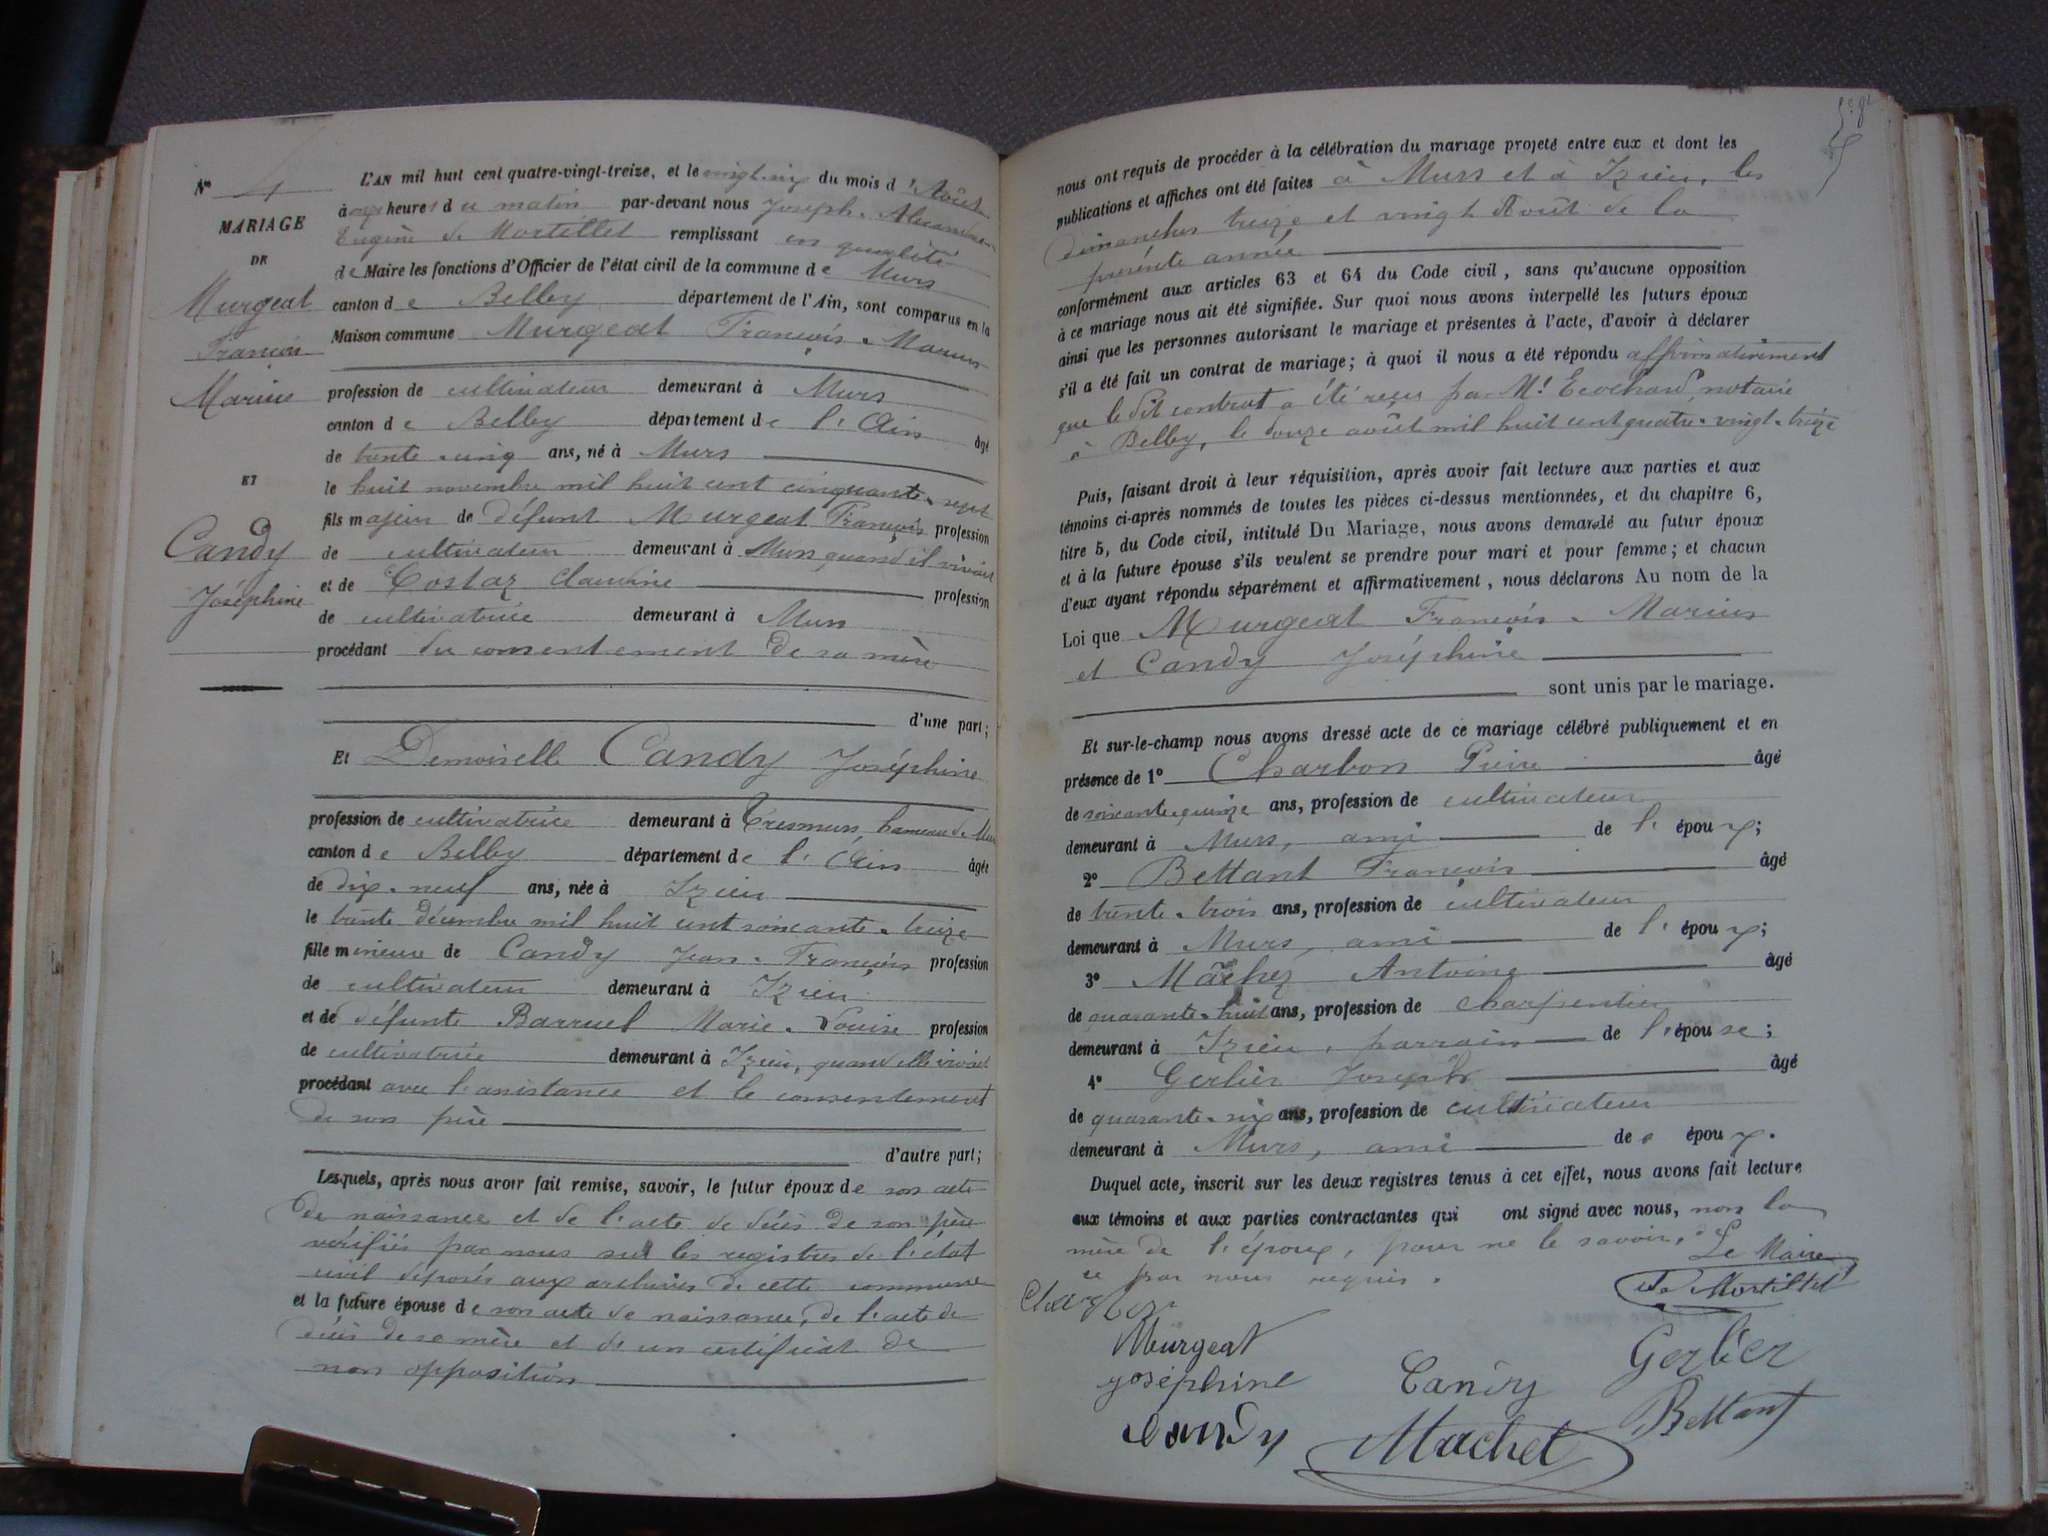 N° 4
MARIAGE
DE
Murgeat
François
Marius
ET
Candy
Joséphine
L'AN mil huit cent quatre-vingt-treize, et le vingt-six du mois d'Août
à onze heures du matin par-devant nous Joseph-Alexandre
Eugène de Mortillet remplissant en qualité
de Maire les fonctions d'Officier de l'état civil de la commune de Murs
canton de Belley département de l'Ain, sont comparus en la
Maison commune Murgeat François-Marius
profession de cultivateur demeurant à Murs
canton de Belley département de l'Ain âgé
de trente-cinq ans, né à Murs
le huit novembre mil huit cent cinquante-sept
fils majeur de défunt Murgeat François profession
de cultivateur demeurant à Murs quand il vivait
et de Costaz Claudine profession
de cultivatrice demeurant à Murs
procédant du consentement de sa mère
d'une part;
Et Demoiselle Candy Joséphine
profession de cultivatrice demeurant à Tresmurs, hameau de Murs
canton de Belley département de l'Ain âgée
de dix-neuf ans, née à Izieu
le trente décembre mil huit cent soixante-treize
fille mineure de Candy Jean-François profession
de cultivateur demeurant à Izieu
et de défunte Barruel Marie-Louise profession
de cultivatrice demeurant à Izieu, quand elle vivait
procédant avec l'assistance et le consentement
de son père
d'autre part;
Lesquels, après nous avoir fait remise, savoir, le futur époux de son acte
de naissance et de l'acte de décès de son père
vérifiés par nous sur les registres de l'état
civil déposés aux archives de cette commune
et la future épouse de son acte de naissance, de l'acte de
décès de sa mère et de un certificat de
non opposition
nous ont requis de procéder à la célébration du mariage projeté entre eux et dont les
publications et affiches ont été faites à Murs et à Izieu, les
dimanches treize et vingt Août de la
présente année
conformément aux articles 63 et 64 du Code civil, sans qu'aucune opposition
à ce mariage nous ait été signifiée. Sur quoi nous avons interpellé les futurs époux
ainsi que les personnes autorisant le mariage et présentes à l'acte, d'avoir à déclarer
s'il a été fait un contrat de mariage; à quoi il nous a été répondu affirmativement
que le dit contrat a été reçu par Mr Ecochard, notaire
à Belley, le douze août mil huit cent quatre-vingt-treize
Puis, faisant droit à leur réquisition, après avoir fait lecture aux parties et aux
témoins ci-après nommés de toutes les pièces ci-dessus mentionnées, et du chapitre 6,
titre 5, du Code civil, intitulé Du Mariage, nous avons demandé au futur époux
et à la future épouse s'ils veulent se prendre pour mari et pour femme; et chacun
d'eux ayant répondu séparément et affirmativement, nous déclarons Au nom de la
Loi que Murgeat François-Marius
et Candy Joséphine
sont unis par le mariage.
Et sur-le-champ nous avons dressé acte de ce mariage célébré publiquement et en
présence de 1° Charbon Pierre âgé
de soixante-quinze ans, profession de cultivateur
demeurant à Murs, ami de l'époux;
2° Bettant François âgé
de trente-trois ans, profession de cultivateur
demeurant à Murs, ami de l'époux;
3° Machet Antoine âgé
de quarante-huit ans, profession de charpentier
demeurant à Izieu, parrain de l'épouse;
4° Gerlier Joseph âgé
de quarante-six ans, profession de cultivateur
demeurant à Murs, ami de époux.
Duquel acte, inscrit sur les deux registres tenus à cet effet, nous avons fait lecture
aux témoins et aux parties contractantes qui ont signé avec nous, non la
mère de l'époux, pour ne le savoir, de
ce par nous requis.
Le Maire
de Mortillet
Charbon
Murgeat
Gerlier
joséphine
Candy
Bettant
Candy
Machet